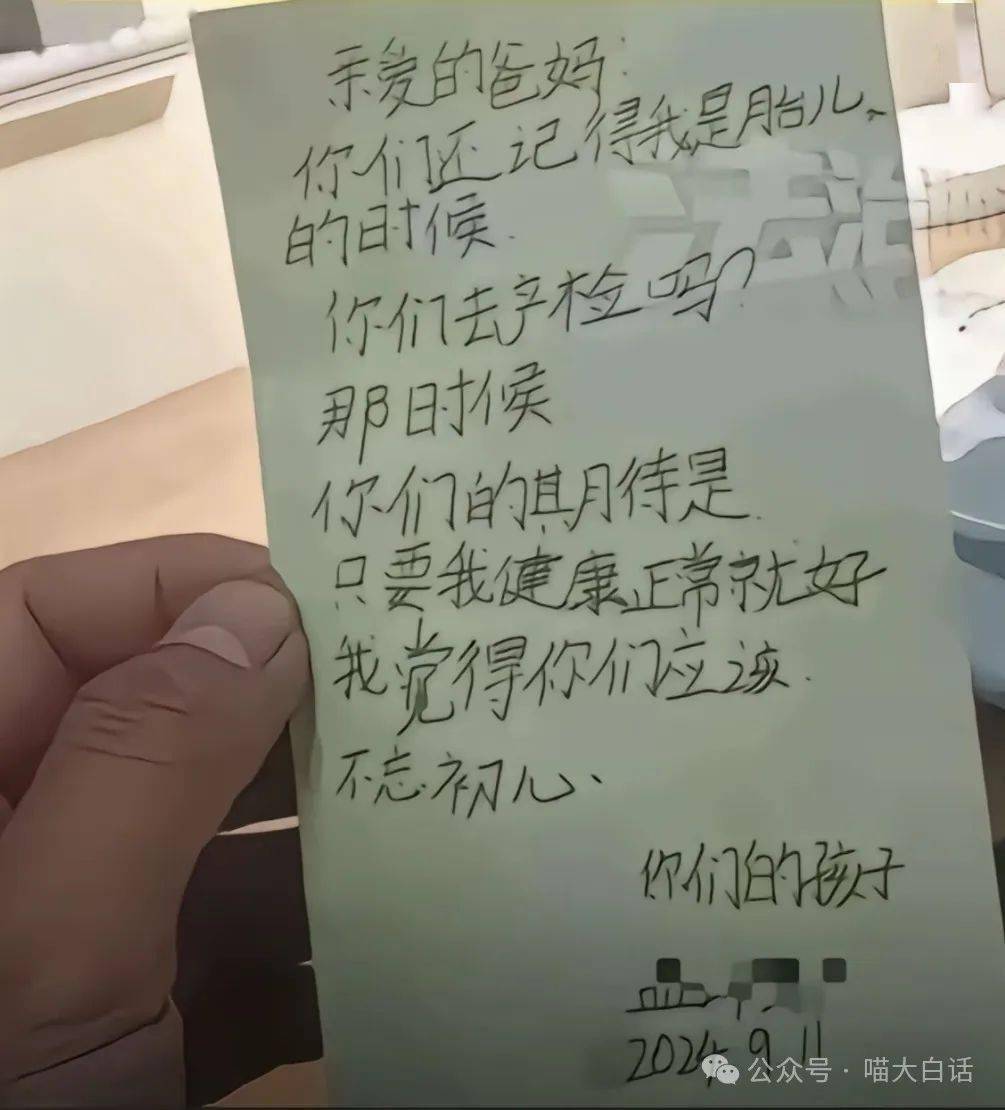 亲爱的爸妈:
你们还记得我是胎儿、
的时候.
你们去产检吗?
那时候
你们的期待是.
只要我健康正常就好
我觉得你们应该.
不忘初心、
你们的孩子
2024.9.11
法治
公众号·喵大白话